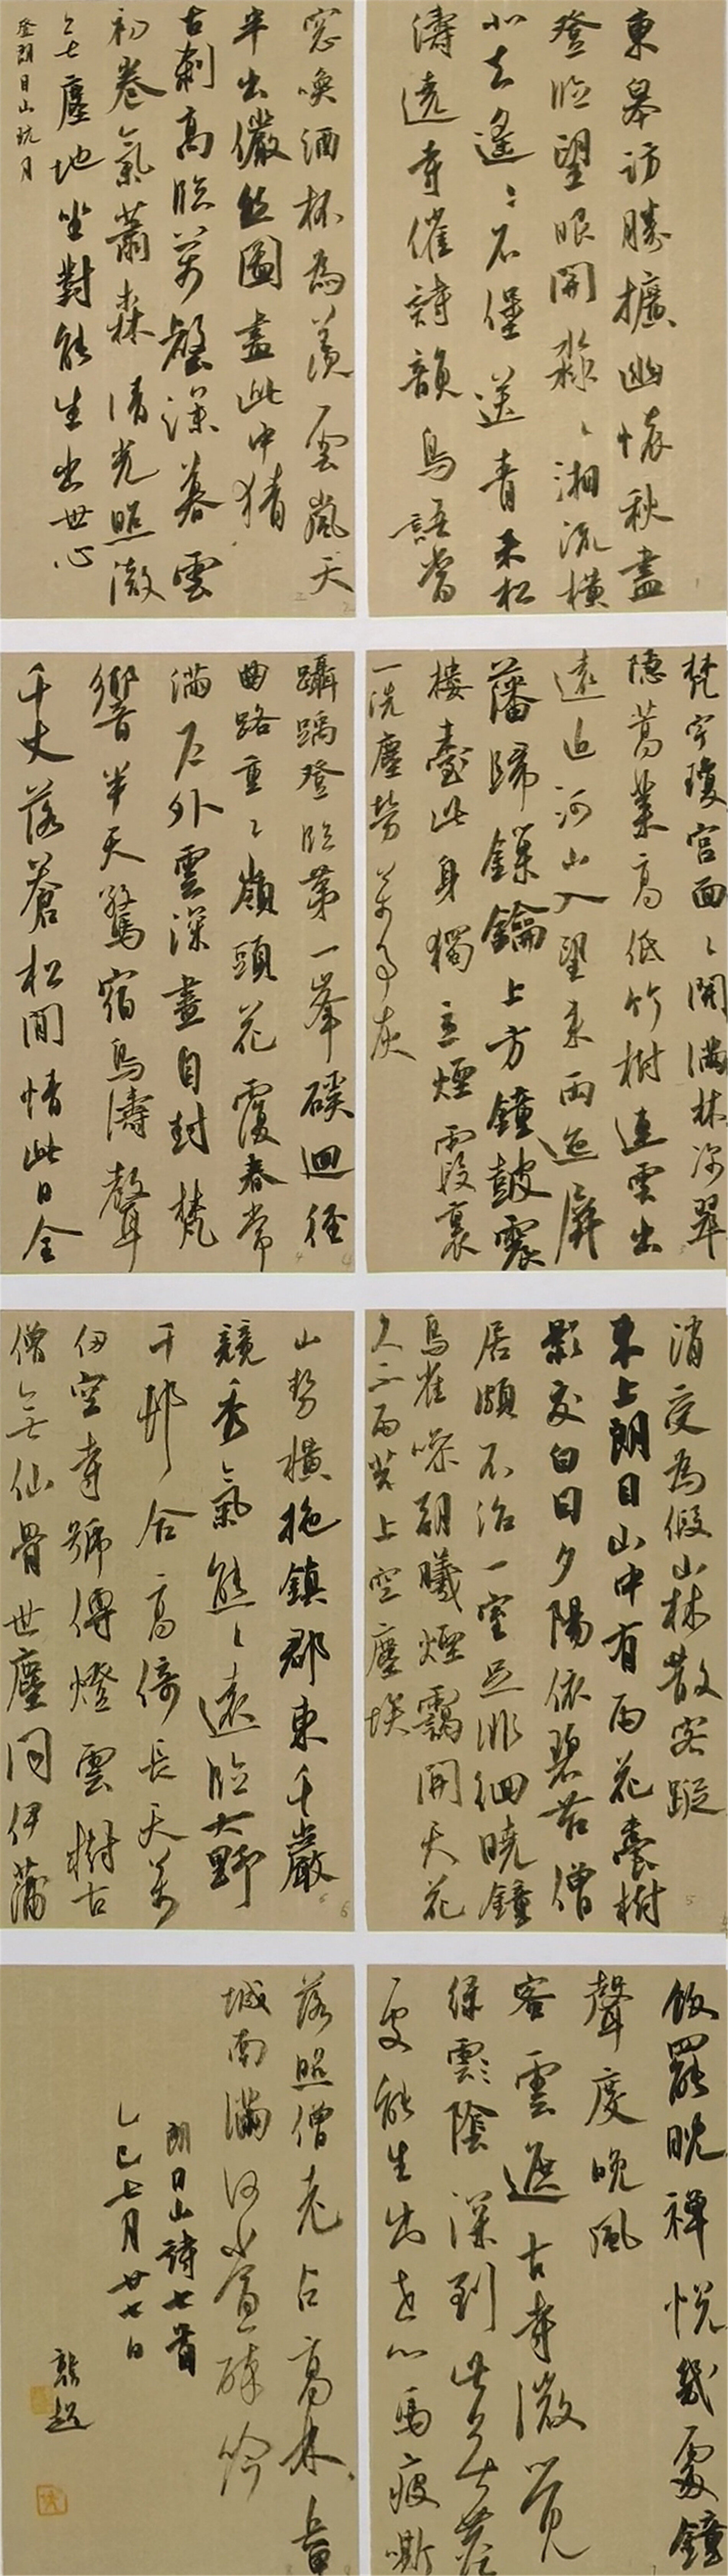 東皋訪勝擴幽懷秋盡
登臨望眼開淼淼湘流橫
北去遙遙石堡送青來松
濤遶寺催詩韻鳥語當
窓喚酒杯為羨雲嵐天
半出儼然圖畫此中猜
古刹高臨萬壑深暮雲
初卷氣蕭森清光照澈
無塵地坐對能生出世心
登朗目山玩月
梵宇瓊宮面面開滿林深翠
隱蒿萊高低竹樹連雲出
遠近河山入望來兩遶屏
藩歸鏁鑰上方鐘鼓震
樓臺此身獨立煙霞裏
一洗塵勞萬事灰
躡蹻登臨第一峯磴迴徑
曲路重重嶺頭花覆春常
滿戶外雲深晝自封梵
響半天驚宿鳥濤聲
千丈落蒼松閒情此日全
消受為假山林散客蹤
來上朗目山中有雨花臺樹
影交白日夕陽依碧苔僧
居頗不治一室足徘徊曉鐘
鳥雀噪朝曦煙靄開天花
久不雨安上空塵埃
山勢橫拖鎮郡東千巖
競秀氣熊熊遠臨大野
千邨合高倚長天萬
仞空寺號傳燈雲樹古
僧無仙骨世塵同伊蒲
飯罷眈禪悅幾處鐘
聲度晚風
客雲遮古寺微覺
綠雲陰深到此無塵
處能生出世心馬疲嘶
落照僧老占高林
城南滿河山
朗目山詩七首
乙巳七月廿七日